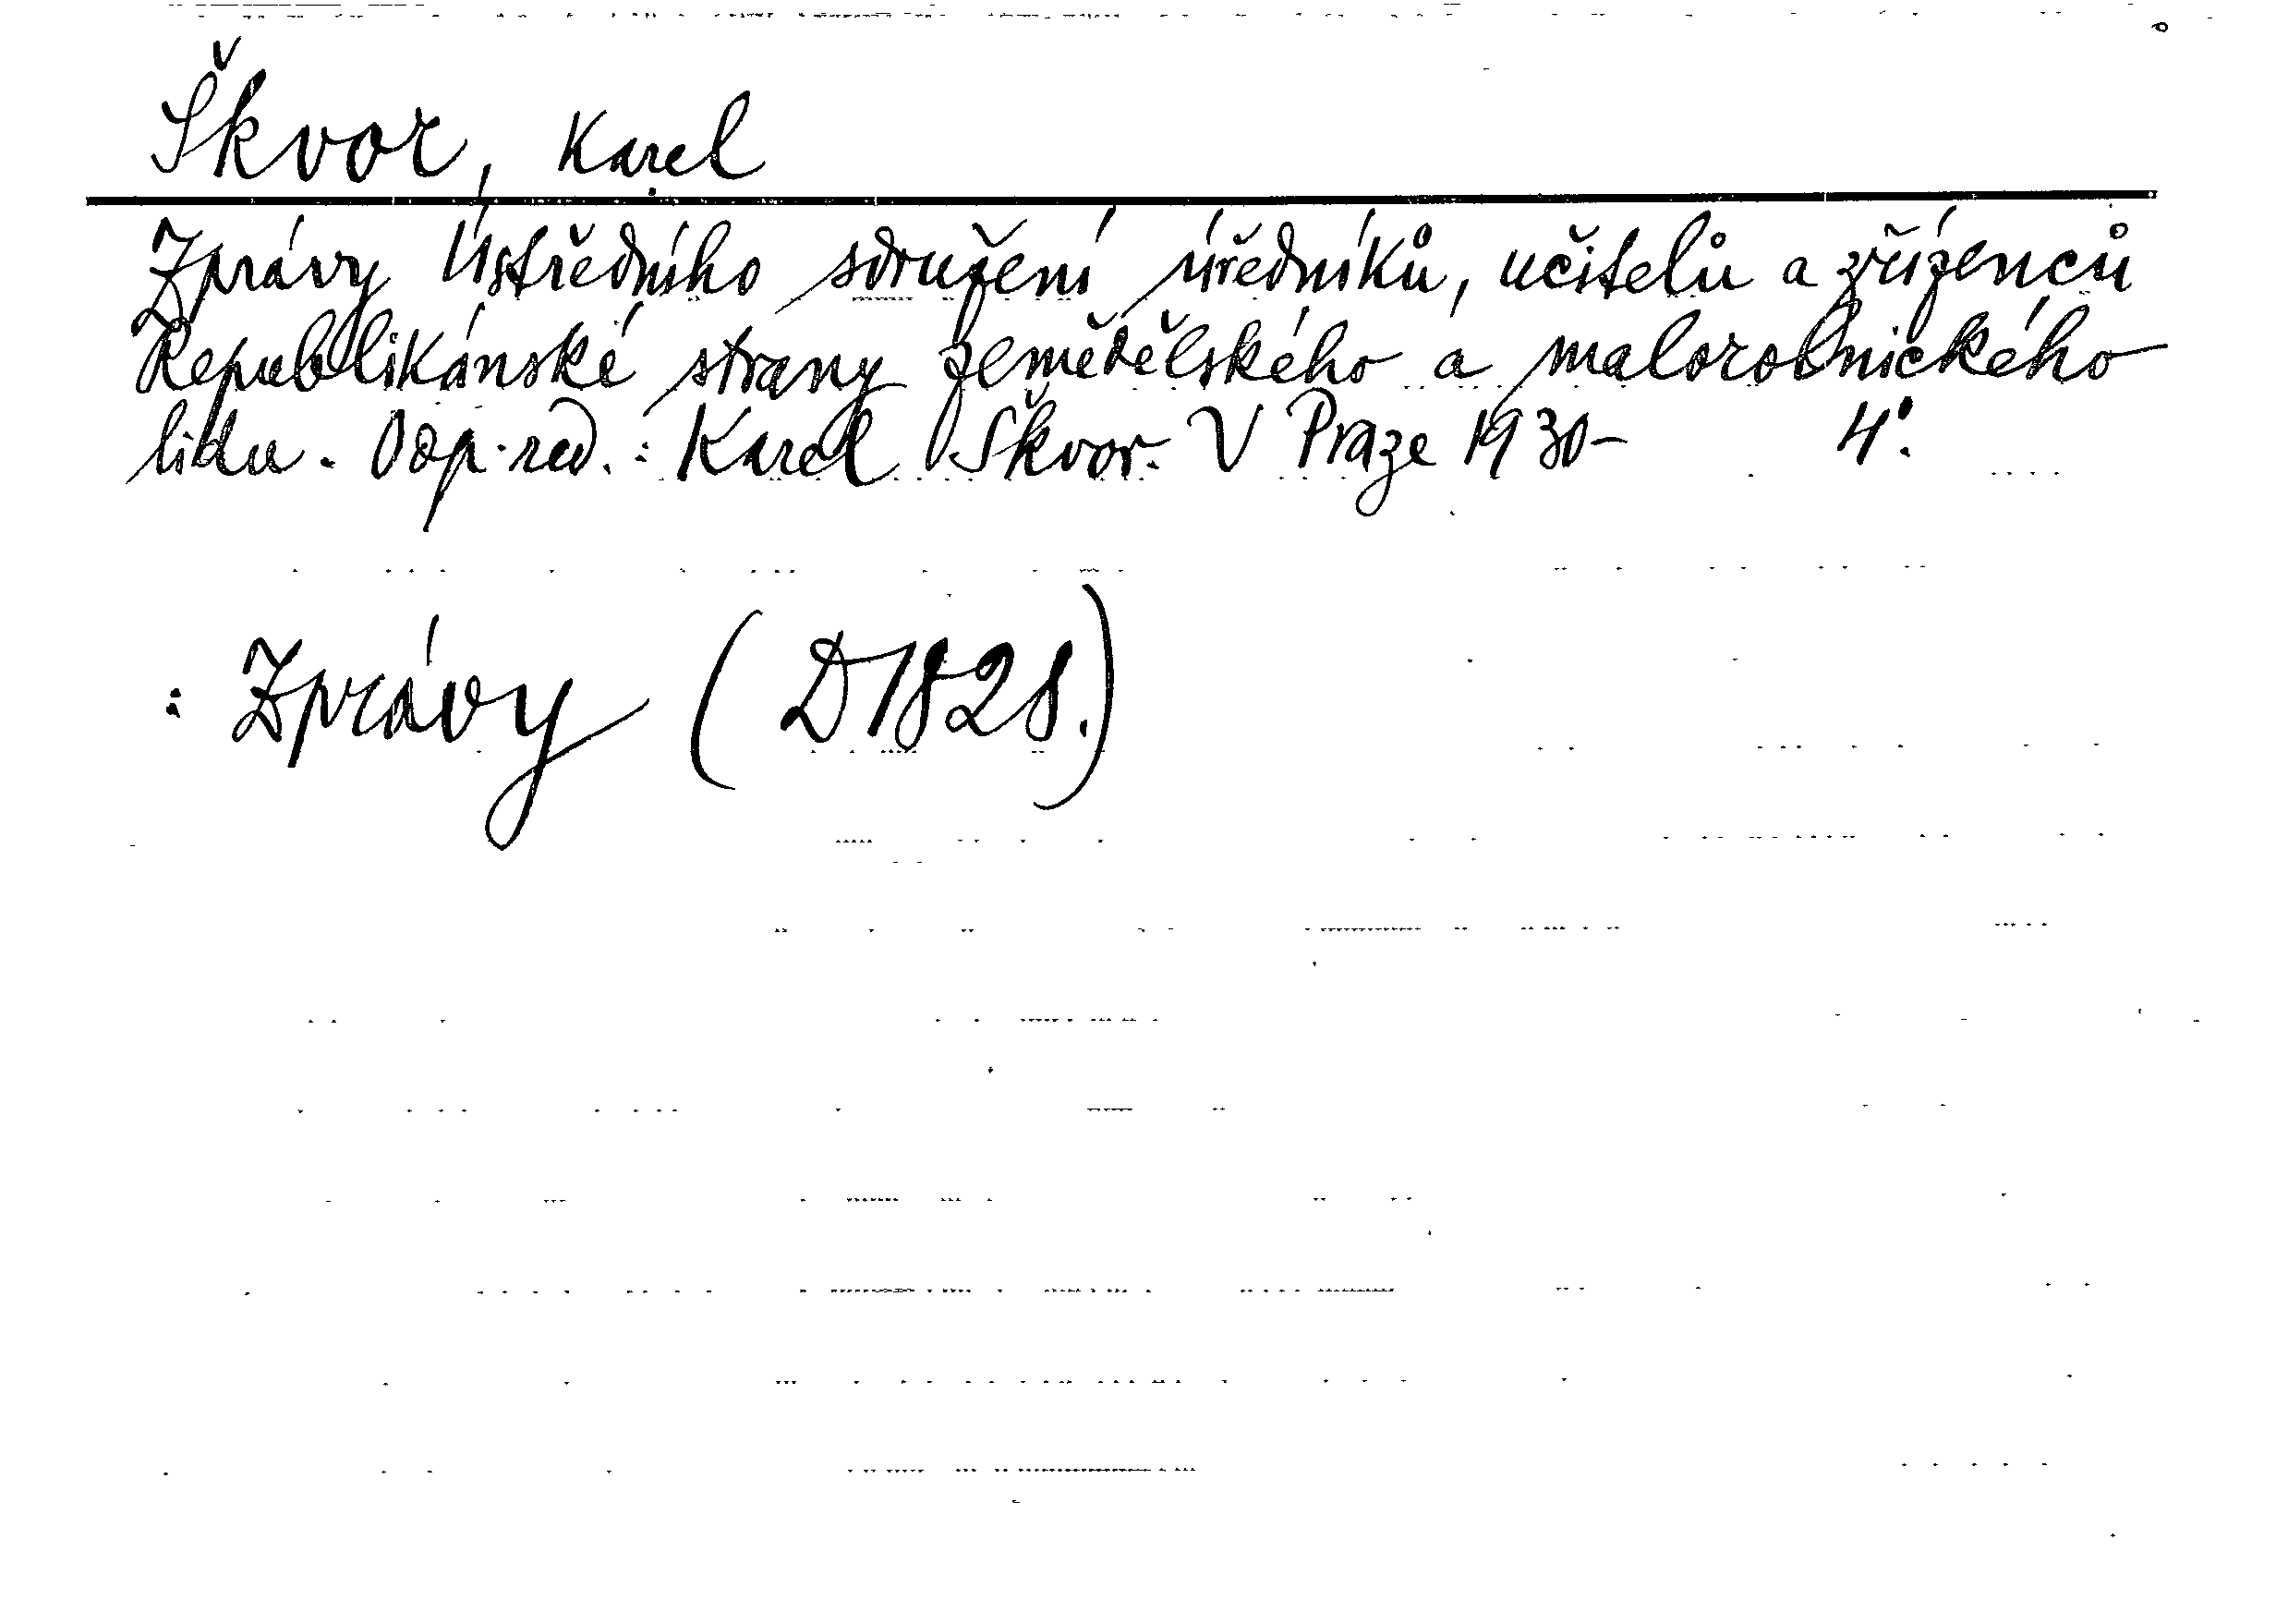 Škvor, Karel
Zprávy Ústředního sdružení úředníků, učitelů a zřízenců
Republikánské strany zemědělského a malorolnického
lidu. Odp. red.: Karel Škvor. V Praze 1930- 4°.
: Zprávy (D1828.)